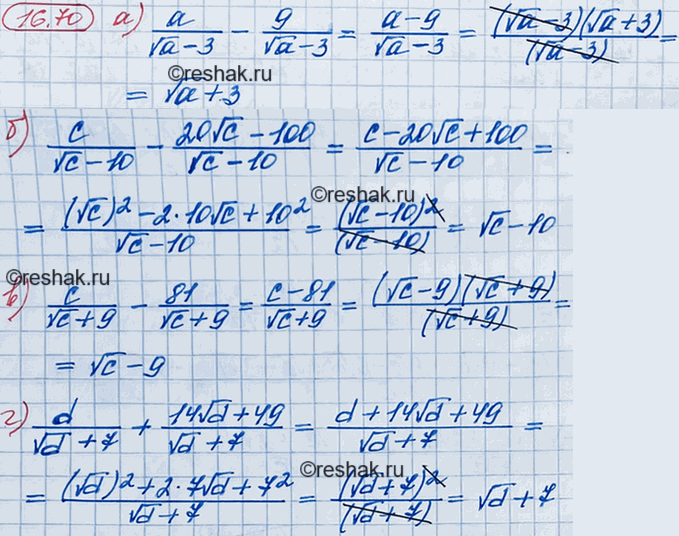 16.70 а) a/(√a−3) − 9/(√a−3) = (a−9)/(√a−3) = ((√a−3)(√a+3))/((√a−3)) =
©reshak.ru
= √a+3
б) c/(√c−10) − (20√c−100)/(√c−10) = (c−20√c+100)/(√c−10) =
©reshak.ru
= ((√c)²−2·10√c+10²)/(√c−10) = (√c−10)²/(√c−10) = √c−10
©reshak.ru
в) c/(√c+9) − 81/(√c+9) = (c−81)/(√c+9) = ((√c−9)(√c+9))/((√c+9)) =
= √c−9
г) d/(√d+7) + (14√d+49)/(√d+7) = (d+14√d+49)/(√d+7) =
©reshak.ru
= ((√d)²+2·7√d+7²)/(√d+7) = (√d+7)²/(√d+7) = √d+7